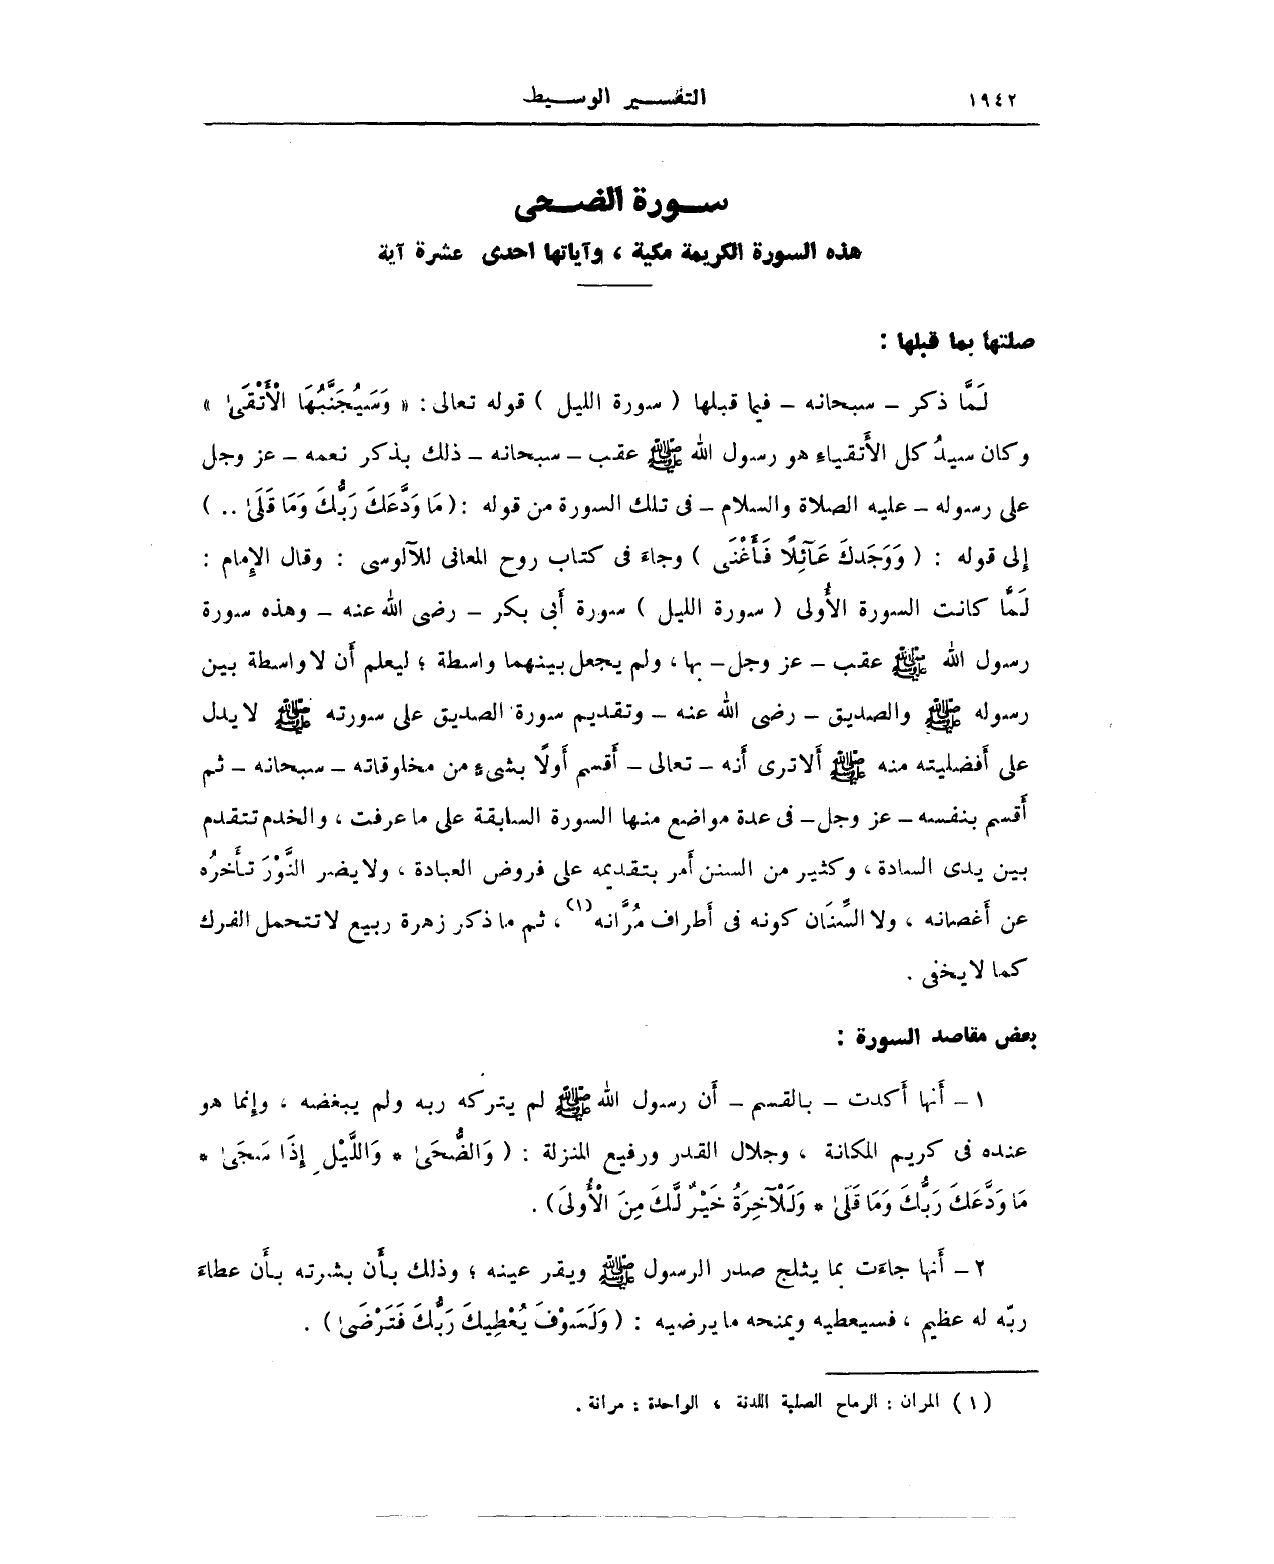 ١٩٤٢
التفسير الوسيط
سورة الضحى
هذه السورة الكريمة مكية ، وآياتها احدى عشرة آية
صلتها بما قبلها :
لَمَّا ذكر – سبحانه – فيما قبلها ( سورة الليل ) قوله تعالى: « وَسَيُجَنَّبُهَا الْأَتْقَىٰ »
وكان سيدُ كل الأَتقياءِ هو رسول الله ﷺ عقب – سبحانه – ذلك بذكر نعمه – عز وجل
على رسوله – عليه الصلاة والسلام – فى تلك السورة من قوله : ( مَا وَدَّعَكَ رَبُّكَ وَمَا قَلَىٰ .. )
إلى قوله : ( وَوَجَدكَ عَآئِلًا فَأَغْنَى ) وجاءَ فى كتاب روح المعانى للآلوسى : وقال الإمام :
لَمَّا كانت السورة الأُولى ( سورة الليل ) سورة أَبى بكر – رضى الله عنه – وهذه سورة
رسول الله ﷺ عقب – عز وجل– بها ، ولم يجعل بينهما واسطة ؛ ليعلم أَن لا واسطة بين
رسوله ﷺ والصديق – رضى الله عنه – وتقديم سورة الصديق على سورته ﷺ لا يدل
على أَفضليته منه ﷺ أَلا ترى أَنه – تعالى – أَقسم أَولًا بشىءٍ من مخلوقاته – سبحانه – ثم
أَقسم بنفسه – عز وجل– فى عدة مواضع منها السورة السابقة على ما عرفت ، والخدم تتقدم
بين يدى السادة ، وكثير من السنن أَمر بتقديمه على فروض العبادة ، ولا يضر النَّوْرَ تأَخرُه
عن أَغصانه ، ولا السِّنَان كونه فى أَطراف مُرَّانه(١) ، ثم ما ذكر زهرة ربيع لا تتحمل الفرك
كما لا يخفى .
بعض مقاصد السورة :
١ – أَنها أَكدت – بالقسم – أَن رسول الله ﷺ لم يتركه ربه ولم يبغضه ، وإنما هو
عنده فى كريم المكانة ، وجلال القدر ورفيع المنزلة : ( وَالضُّحَىٰ * وَاللَّيْلِ إِذَا سَجَىٰ *
مَا وَدَّعَكَ رَبُّكَ وَمَا قَلَىٰ * وَلَلْآخِرَةُ خَيْرٌ لَّكَ مِنَ الْأُولَىٰ) .
٢ – أَنها جاءَت بما يثلج صدر الرسول ﷺ ويقر عينه ؛ وذلك بأَن بشرته بأَن عطاءَ
ربّه له عظيم ، فسيعطيه ويمنحه ما يرضيه : ( وَلَسَوْفَ يُعْطِيكَ رَبُّكَ فَتَرْضَىٰ ) .
( ١ ) المران : الرماح الصلبة اللدنة ، الواحدة : مرانة .